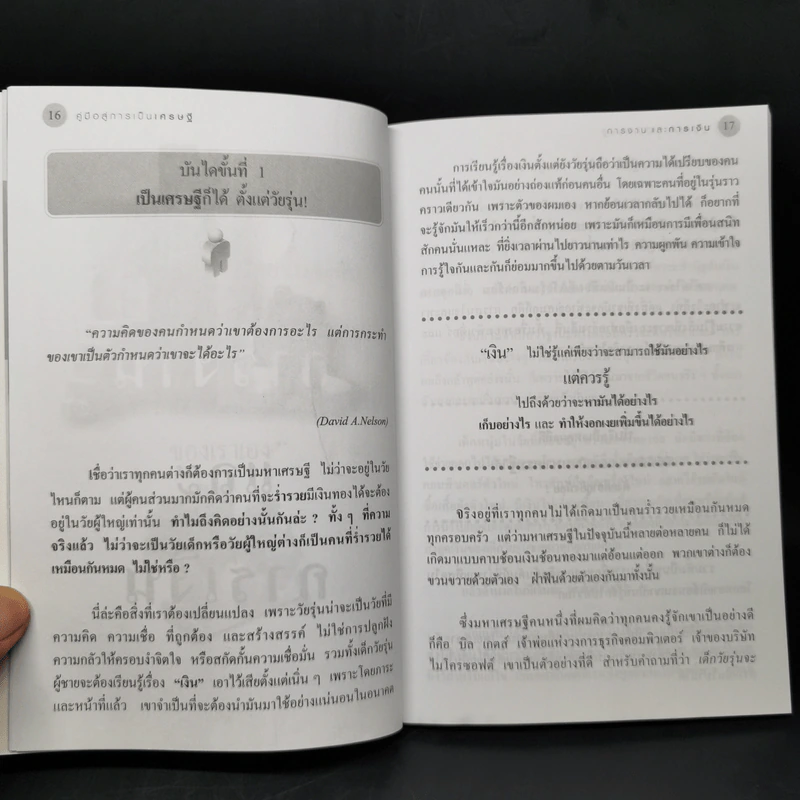 16 คู่มือสู่การเป็นเศรษฐี
บันไดขั้นที่ 1
เป็นเศรษฐีก็ได้ ตั้งแต่วัยรุ่น!
“ความคิดของคนกำหนดว่าเขาต้องการอะไร แต่การกระทำ
ของเขาเป็นตัวกำหนดว่าเขาจะได้อะไร”
(David A.Nelson)
เชื่อว่าเราทุกคนต่างก็ต้องการเป็นมหาเศรษฐี ไม่ว่าจะอยู่ในวัย
ไหนก็ตาม แต่ผู้คนส่วนมากมักคิดว่าคนที่จะร่ำรวยมีเงินทองได้จะต้อง
อยู่ในวัยผู้ใหญ่เท่านั้น ทำไมถึงคิดอย่างนั้นกันล่ะ ? ทั้ง ๆ ที่ความ
จริงแล้ว ไม่ว่าจะเป็นวัยเด็กหรือวัยผู้ใหญ่ต่างก็เป็นคนที่ร่ำรวยได้
เหมือนกันหมด ไม่ใช่หรือ ?
นี่ล่ะคือสิ่งที่เราต้องเปลี่ยนแปลง เพราะวัยรุ่นน่าจะเป็นวัยที่มี
ความคิด ความเชื่อ ที่ถูกต้อง และสร้างสรรค์ ไม่ใช่การปลูกฝัง
ความกลัวให้ครอบงำจิตใจ หรือสกัดกั้นความเชื่อมั่น รวมทั้งเด็กวัยรุ่น
ผู้ชายจะต้องเรียนรู้เรื่อง “เงิน” เอาไว้เสียตั้งแต่เนิ่น ๆ เพราะโดยภาระ
และหน้าที่แล้ว เขาจำเป็นที่จะต้องนำมันมาใช้อย่างแน่นอนในอนาคต
การงานและการเงิน 17
การเรียนรู้เรื่องเงินตั้งแต่ยังวัยรุ่นถือว่าเป็นความได้เปรียบของคน
คนนั้นที่ได้เข้าใจมันอย่างถ่องแท้ก่อนคนอื่น โดยเฉพาะคนที่อยู่ในรุ่นราว
คราวเดียวกัน เพราะตัวของผมเอง หากย้อนเวลากลับไปได้ ก็อยากที่
จะรู้จักมันให้เร็วกว่านี้อีกสักหน่อย เพราะมันก็เหมือนการมีเพื่อนสนิท
สักคนนั่นแหละ ที่ยิ่งเวลาผ่านไปยาวนานเท่าไร ความผูกพัน ความเข้าใจ
การรู้ใจกันและกันก็ย่อมมากขึ้นไปด้วยตามวันเวลา
“เงิน” ไม่ใช่รู้แค่เพียงว่าจะสามารถใช้มันอย่างไร
แต่ควรรู้
ไปถึงด้วยว่าจะหามันได้อย่างไร
เก็บอย่างไร และ ทำให้งอกเงยเพิ่มขึ้นได้อย่างไร
จริงอยู่ที่เราทุกคนไม่ได้เกิดมาเป็นคนร่ำรวยเหมือนกันหมด
ทุกครอบครัว แต่ว่ามหาเศรษฐีในปัจจุบันนี้หลายต่อหลายคน ก็ไม่ได้
เกิดมาแบบคาบช้อนเงินช้อนทองมาแต่อ้อนแต่ออก พวกเขาต่างก็ต้อง
ขวนขวายด้วยตัวเอง ฝ่าฟันด้วยตัวเองกันมาทั้งนั้น
ซึ่งมหาเศรษฐีคนหนึ่งที่ผมคิดว่าทุกคนคงรู้จักเขาเป็นอย่างดี
ก็คือ บิล เกตส์ เจ้าพ่อแห่งวงการธุรกิจคอมพิวเตอร์ เจ้าของบริษัท
ไมโครซอฟต์ เขาเป็นตัวอย่างที่ดี สำหรับคำถามที่ว่า เด็กวัยรุ่นจะ